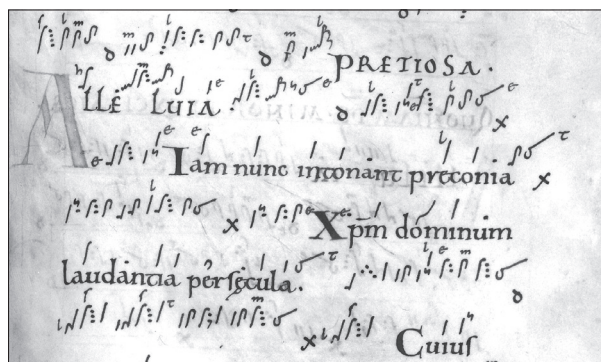 PRETIOSA.
ALLELUIA
Iam nunc intonant preconia
Xpm dominum
laudantia per sęcula.
Cuius